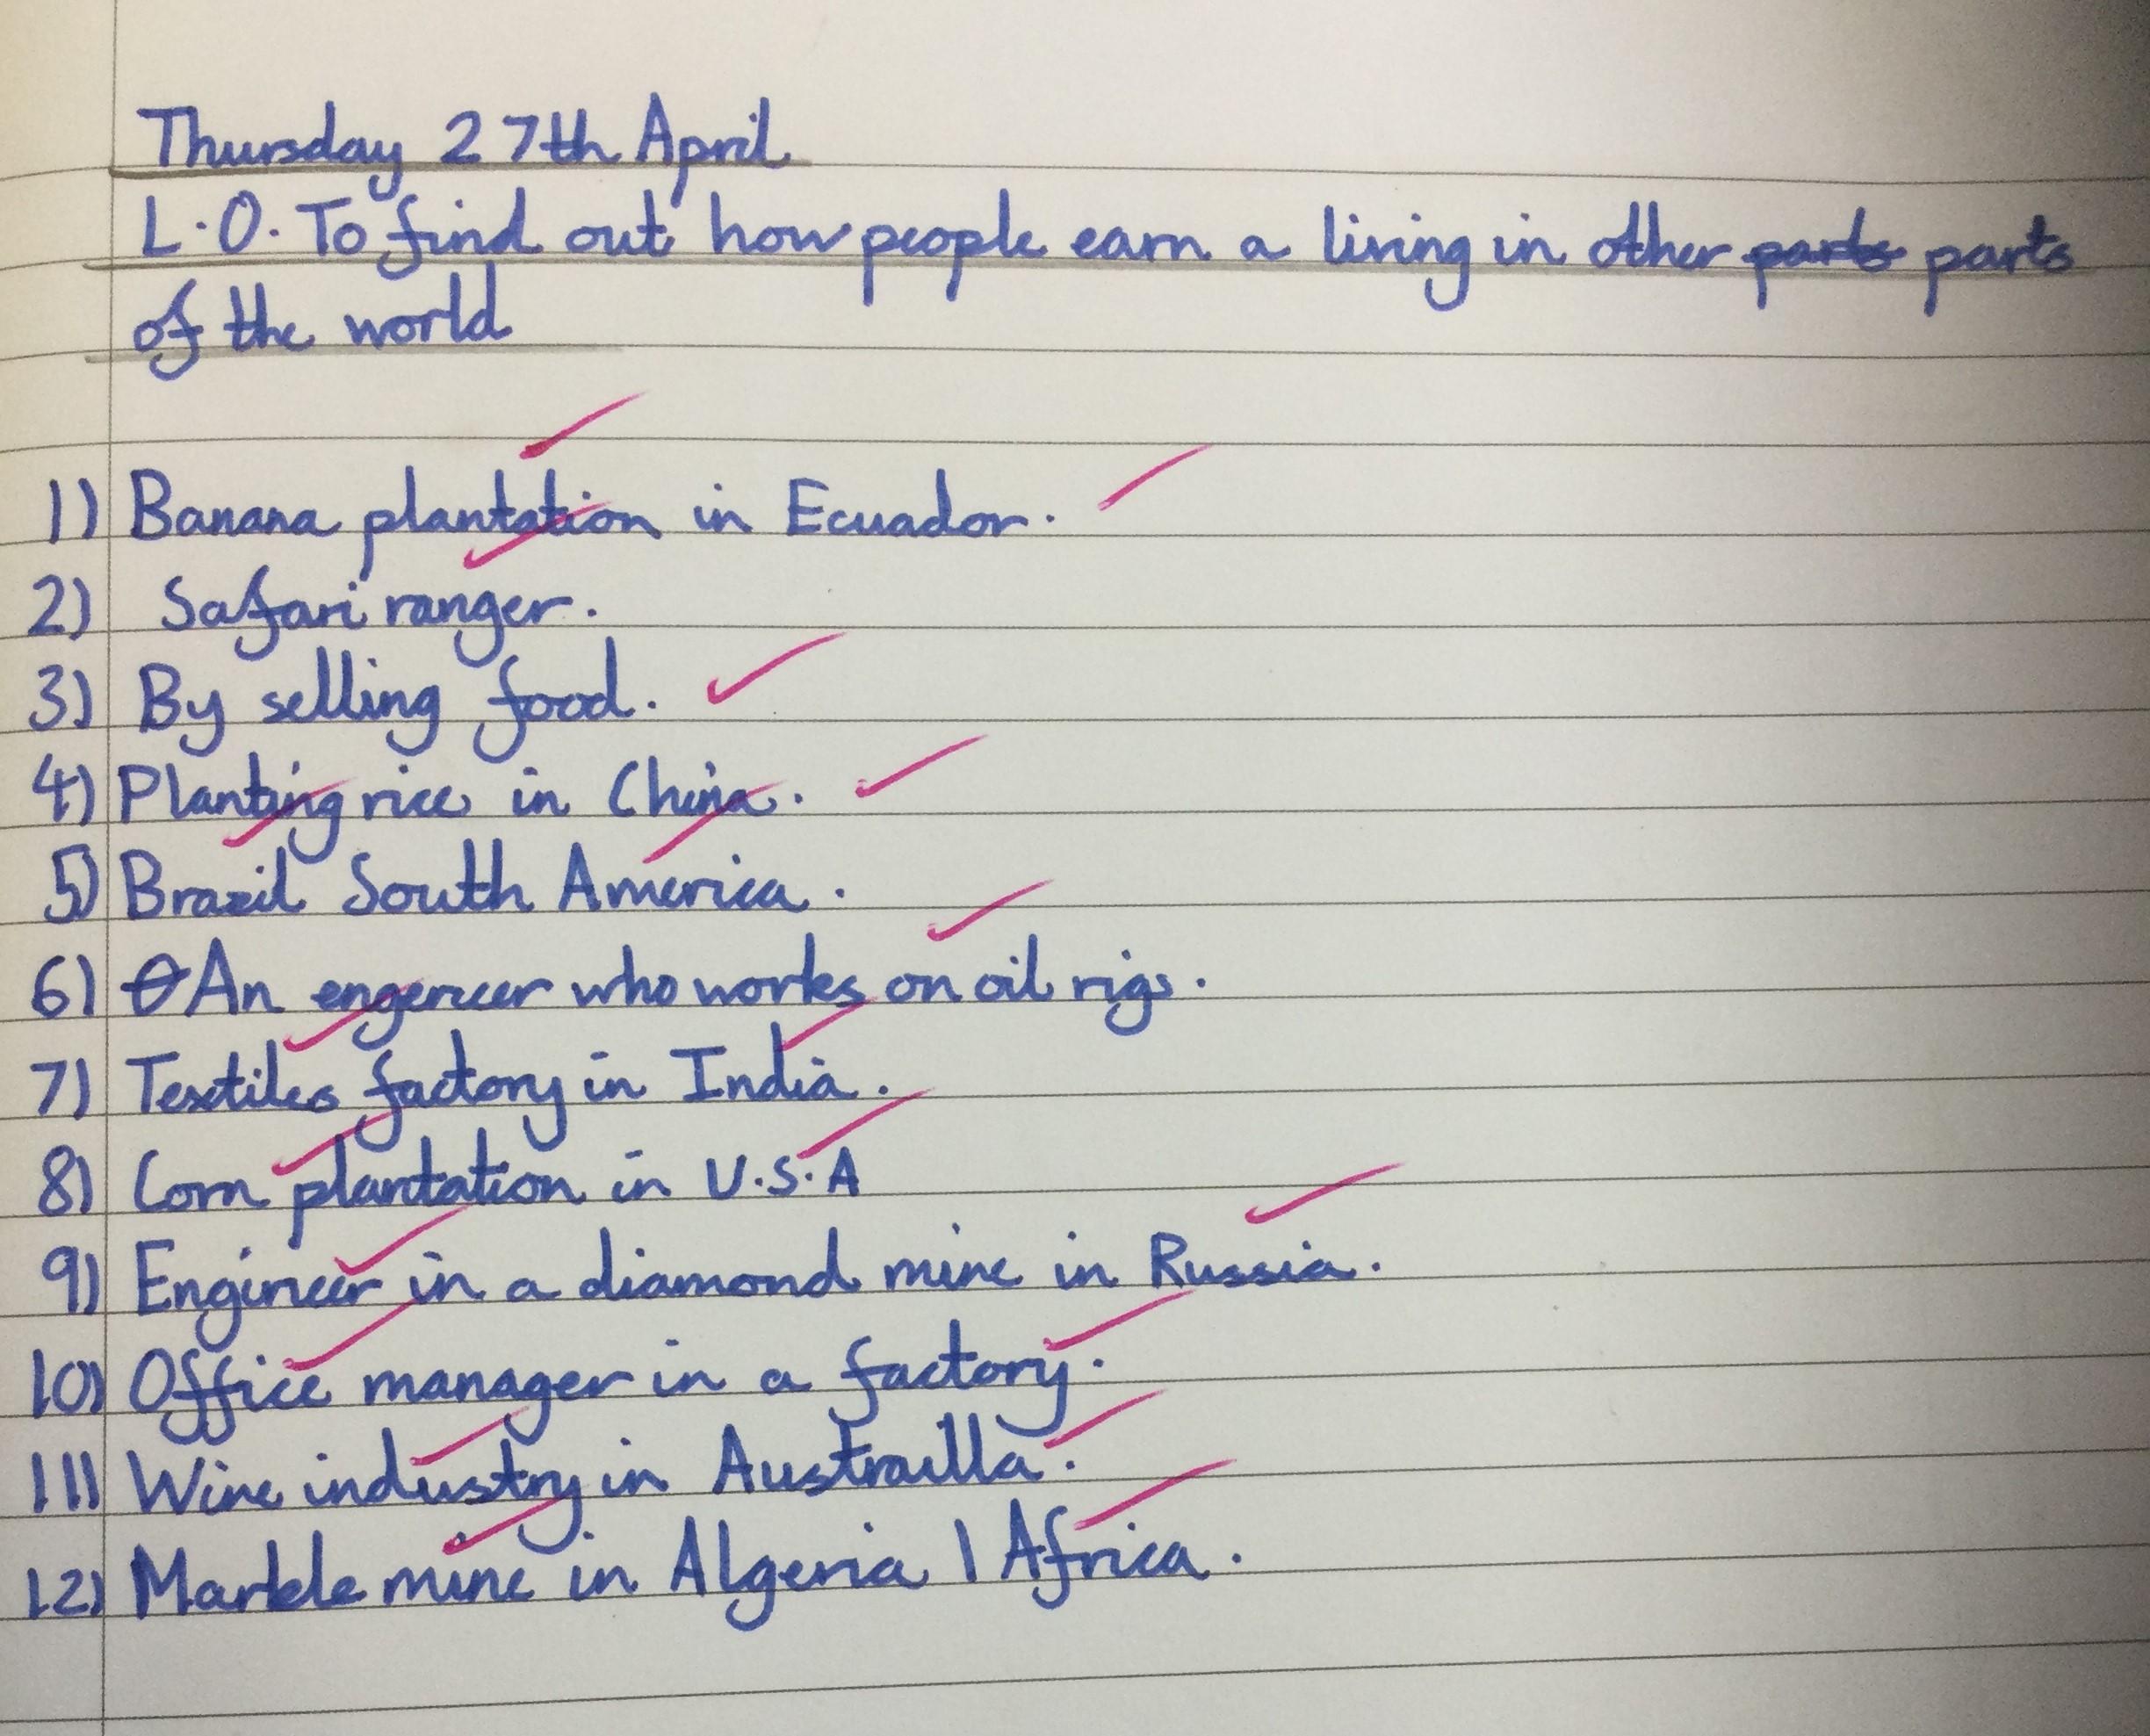 Thursday 27th April
L.O. To find out how people earn a living in other parts parts
of the world
1) Banana plantation in Ecuador.
2) Safari ranger.
3) By selling food.
4) Planting rice in China.
5) Brazil South America.
6) An engeneer who works on oil rigs.
7) Textiles factory in India.
8) Corn plantation in U.S.A
9) Engineer in a diamond mine in Russia.
10) Office manager in a factory.
11) Wine industry in Austrailla.
12) Marble mine in Algeria | Africa.